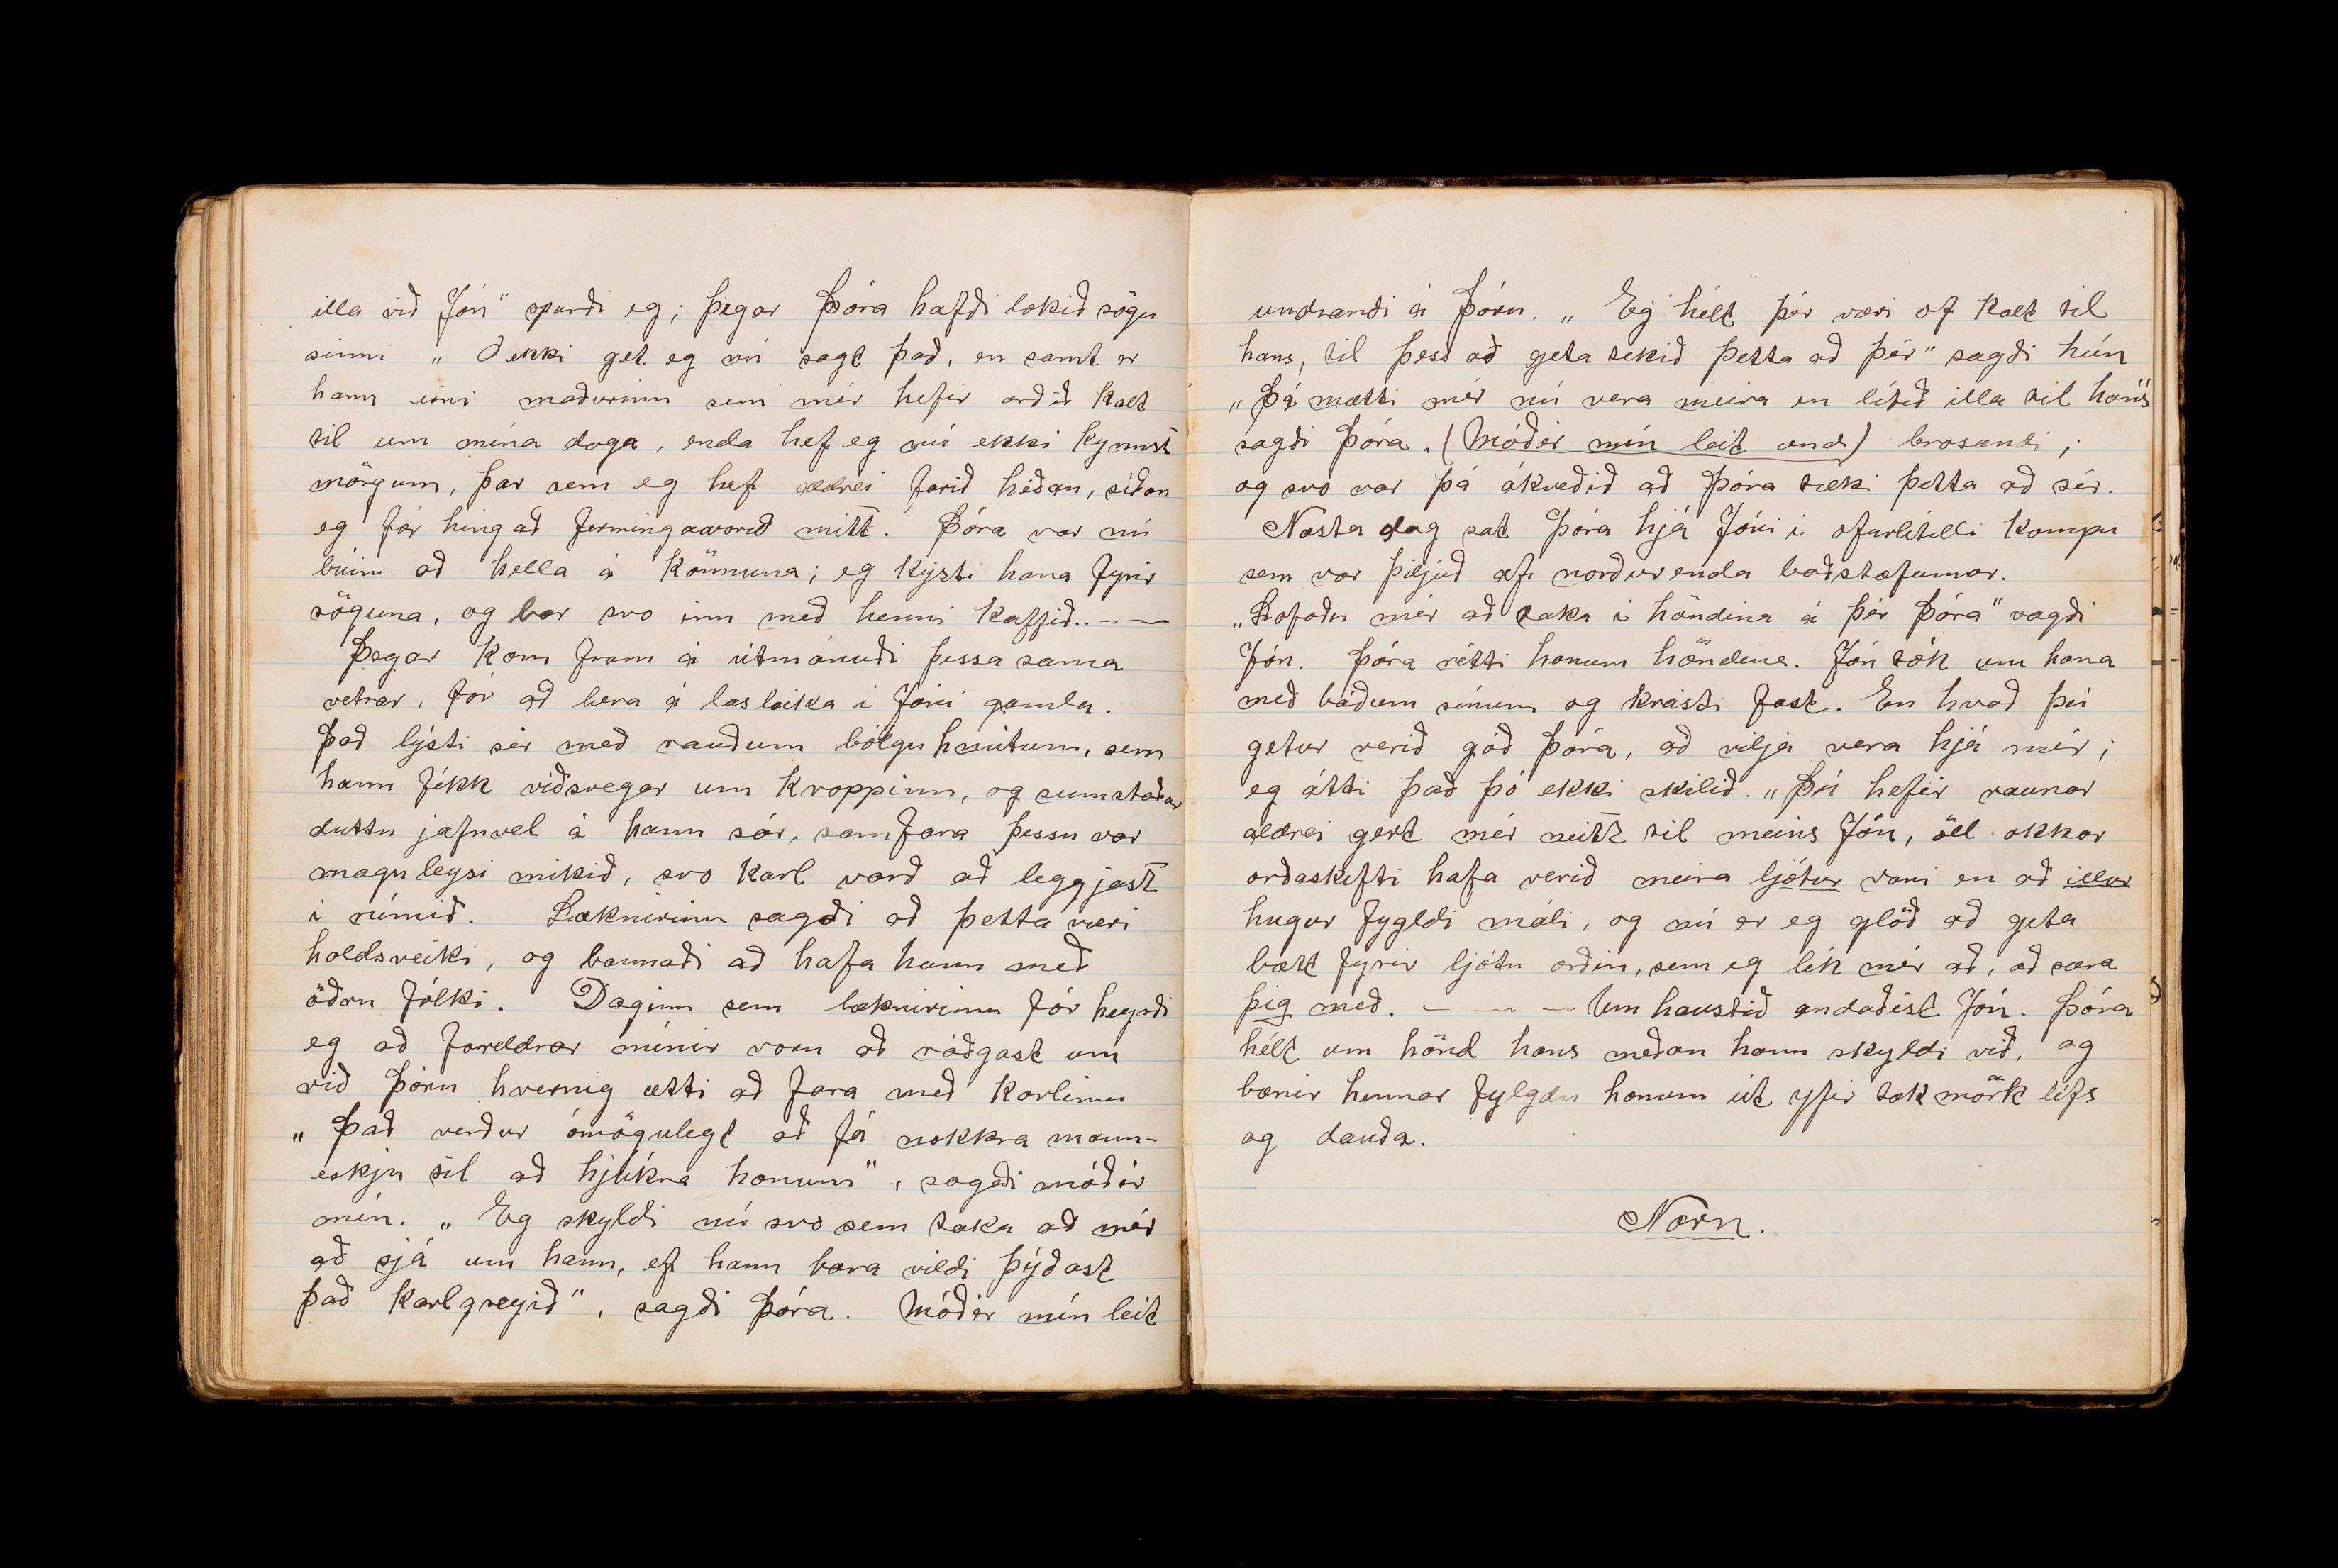 illa við Jón" spurði eg; þegar Þóra hafði lokið sögu
sinni „ Ó ekki get eg nú sagt það, en samt er
hann eini maðurinn sem mér hefir orðið kalt
til um mína daga, enda hef eg nú ekki kynnst
mörgum, þar sem eg hef aldrei farið héðan, síðan
eg fór hingað fermingavorið mitt. Þóra var nú
búin að hella á könnuna; eg kysti hana fyrir
söguna, og bar svo inn með henni kaffið..- - -
Þegar kom fram á útmánuði þessa sama
vetrar, fór að bera á lasleika í Jóni gamla.
Það lýsti sér með rauðum bólguhnútum, sem
hann fékk víðsvegar um kroppinn, og sumstaðar
duttu jafnvel á hann sár, samfara þessu var
magnleysi mikið, svo karl varð að leggjast
í rúmið. Læknirinn sagði að þetta væri
holdsveiki, og bannaði að hafa hann með
öðru fólki. Daginn sem læknirinn fór heyrði
eg að foreldrar mínir voru að ráðgast um
við Þóru hvernig ætti að fara með karlinn
„ Það verður ómögulegt að fá nokkra mann-
eskju til að hjúkra honum", sagði móðir
mín. „ Eg skyldi nú svo sem taka að mér
að sjá um hann, ef hann bara vildi þýðast
það karlgreyið", sagði Þóra. Móðir mín leit
undrandi á Þóru. „ Eg hélt þér væri of kalt til
hans, til þess að geta tekið þetta að þér" sagði hún
„Þá mætti mér nú vera meira en lítið illa til hans"
sagði Þóra. (Móðir mín leit und.) brosandi;
og svo var þá ákveðið að Þóra tæki þetta að sér.
Næsta dag sat Þóra hjá Jóni í ofurlítilli kompu
sem var þiljuð af norðurenda baðstofunnar.
„Lofaðu mér að taka í höndina á þér Þóra" sagði
Jón. Þóra rétti honum höndina. Jón tók um hana
með báðum sínum og kreisti fast. En hvað þú
getur verið góð Þóra, að vilja vera hjá mér;
eg átti það þó ekki skilið. „Þú hefir raunar
aldrei gert mér neitt til meins Jón, öll okkar
orðaskifti hafa verið meira ljótur vani en að illur
hugur fygldi máli, og nú er eg glöð að geta
bætt fyrir ljótu orðin, sem eg lék mér að, að særa
þig með. - - - Um haustið andaðist Jón. Þóra
hélt um hönd hans meðan hann skyldi við, og
bænir hennar fylgdu honum út yfir takmörk lífs
og dauða.
Norn.